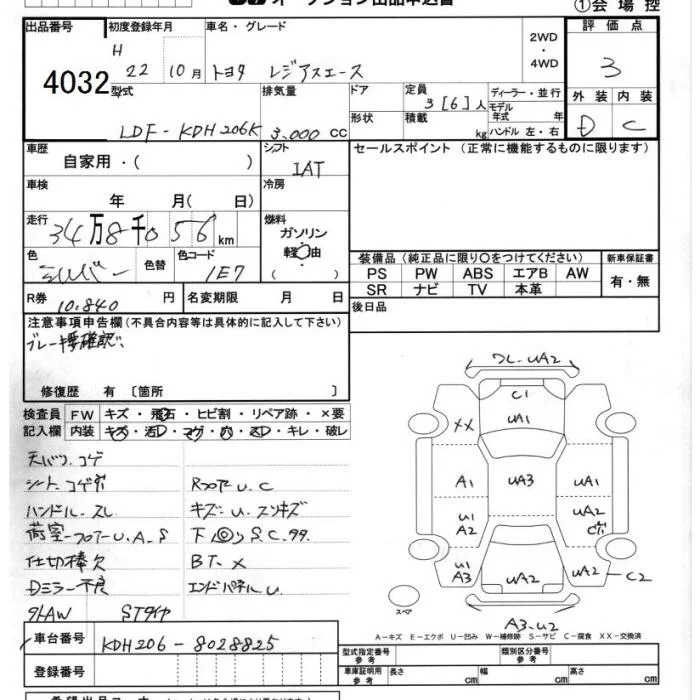 オークション出品申込書
①会場控
出品番号 初度登録年月 車名・グレード 評価点
4032 H 22 10月 トヨタ レジアスエース 2WD・4WD 3
型式 排気量 ドア 定員 3[6]人 ディーラー・並行 外装 内装
LDF-KDH206K 3,000cc 形状 積載 kg モデル年式 年 ハンドル 左・右 D C
車歴 自家用・( ) シフト IAT セールスポイント(正常に機能するものに限ります)
車検 年 月( 日) 冷房
走行 34万8千056km 燃料 ガソリン 軽油 ( )
色 シルバー 色替 色コード 1E7
装備品(純正品に限り○をつけてください) 新車保証書
PS PW ABS エアB AW 有・無
SR ナビ TV 本革
R券 10.840円 名変期限 月 日 後日品
注意事項申告欄(不具合内容等は具体的に記入して下さい)
ブレーキ要確認
修復歴 有〔箇所 〕
検査員 FW キズ・飛石・ヒビ割・リペア跡・×要
記入欄 内装 キズ・汚D・コゲ・穴・スD・キレ・破レ
天バツ.コゲ
シート.コゲ穴 Rフロアー U.C
ハンドル-スレ キズ:U.スリキズ
荷室-フロアーU.A.S 下◎S.C.
仕切棒欠 BT-×
Dミラー不良 エンドパネルU.
外AW STタイヤ
ワレ-UA2
C1
UA1
XX
A1 UA3 UA1
U1 A2 UA2
U1 A3 UA2 UA2 C2
スペア
A3-U2
A-キズ E-エクボ U-凹み W-補修跡 S-サビ C-腐食 XX-交換済
車台番号 KDH206-8028825
登録番号
型式指定番号 参考 類別区分番号 参考
車庫証明用 参考 長さ cm 幅 cm 高さ cm